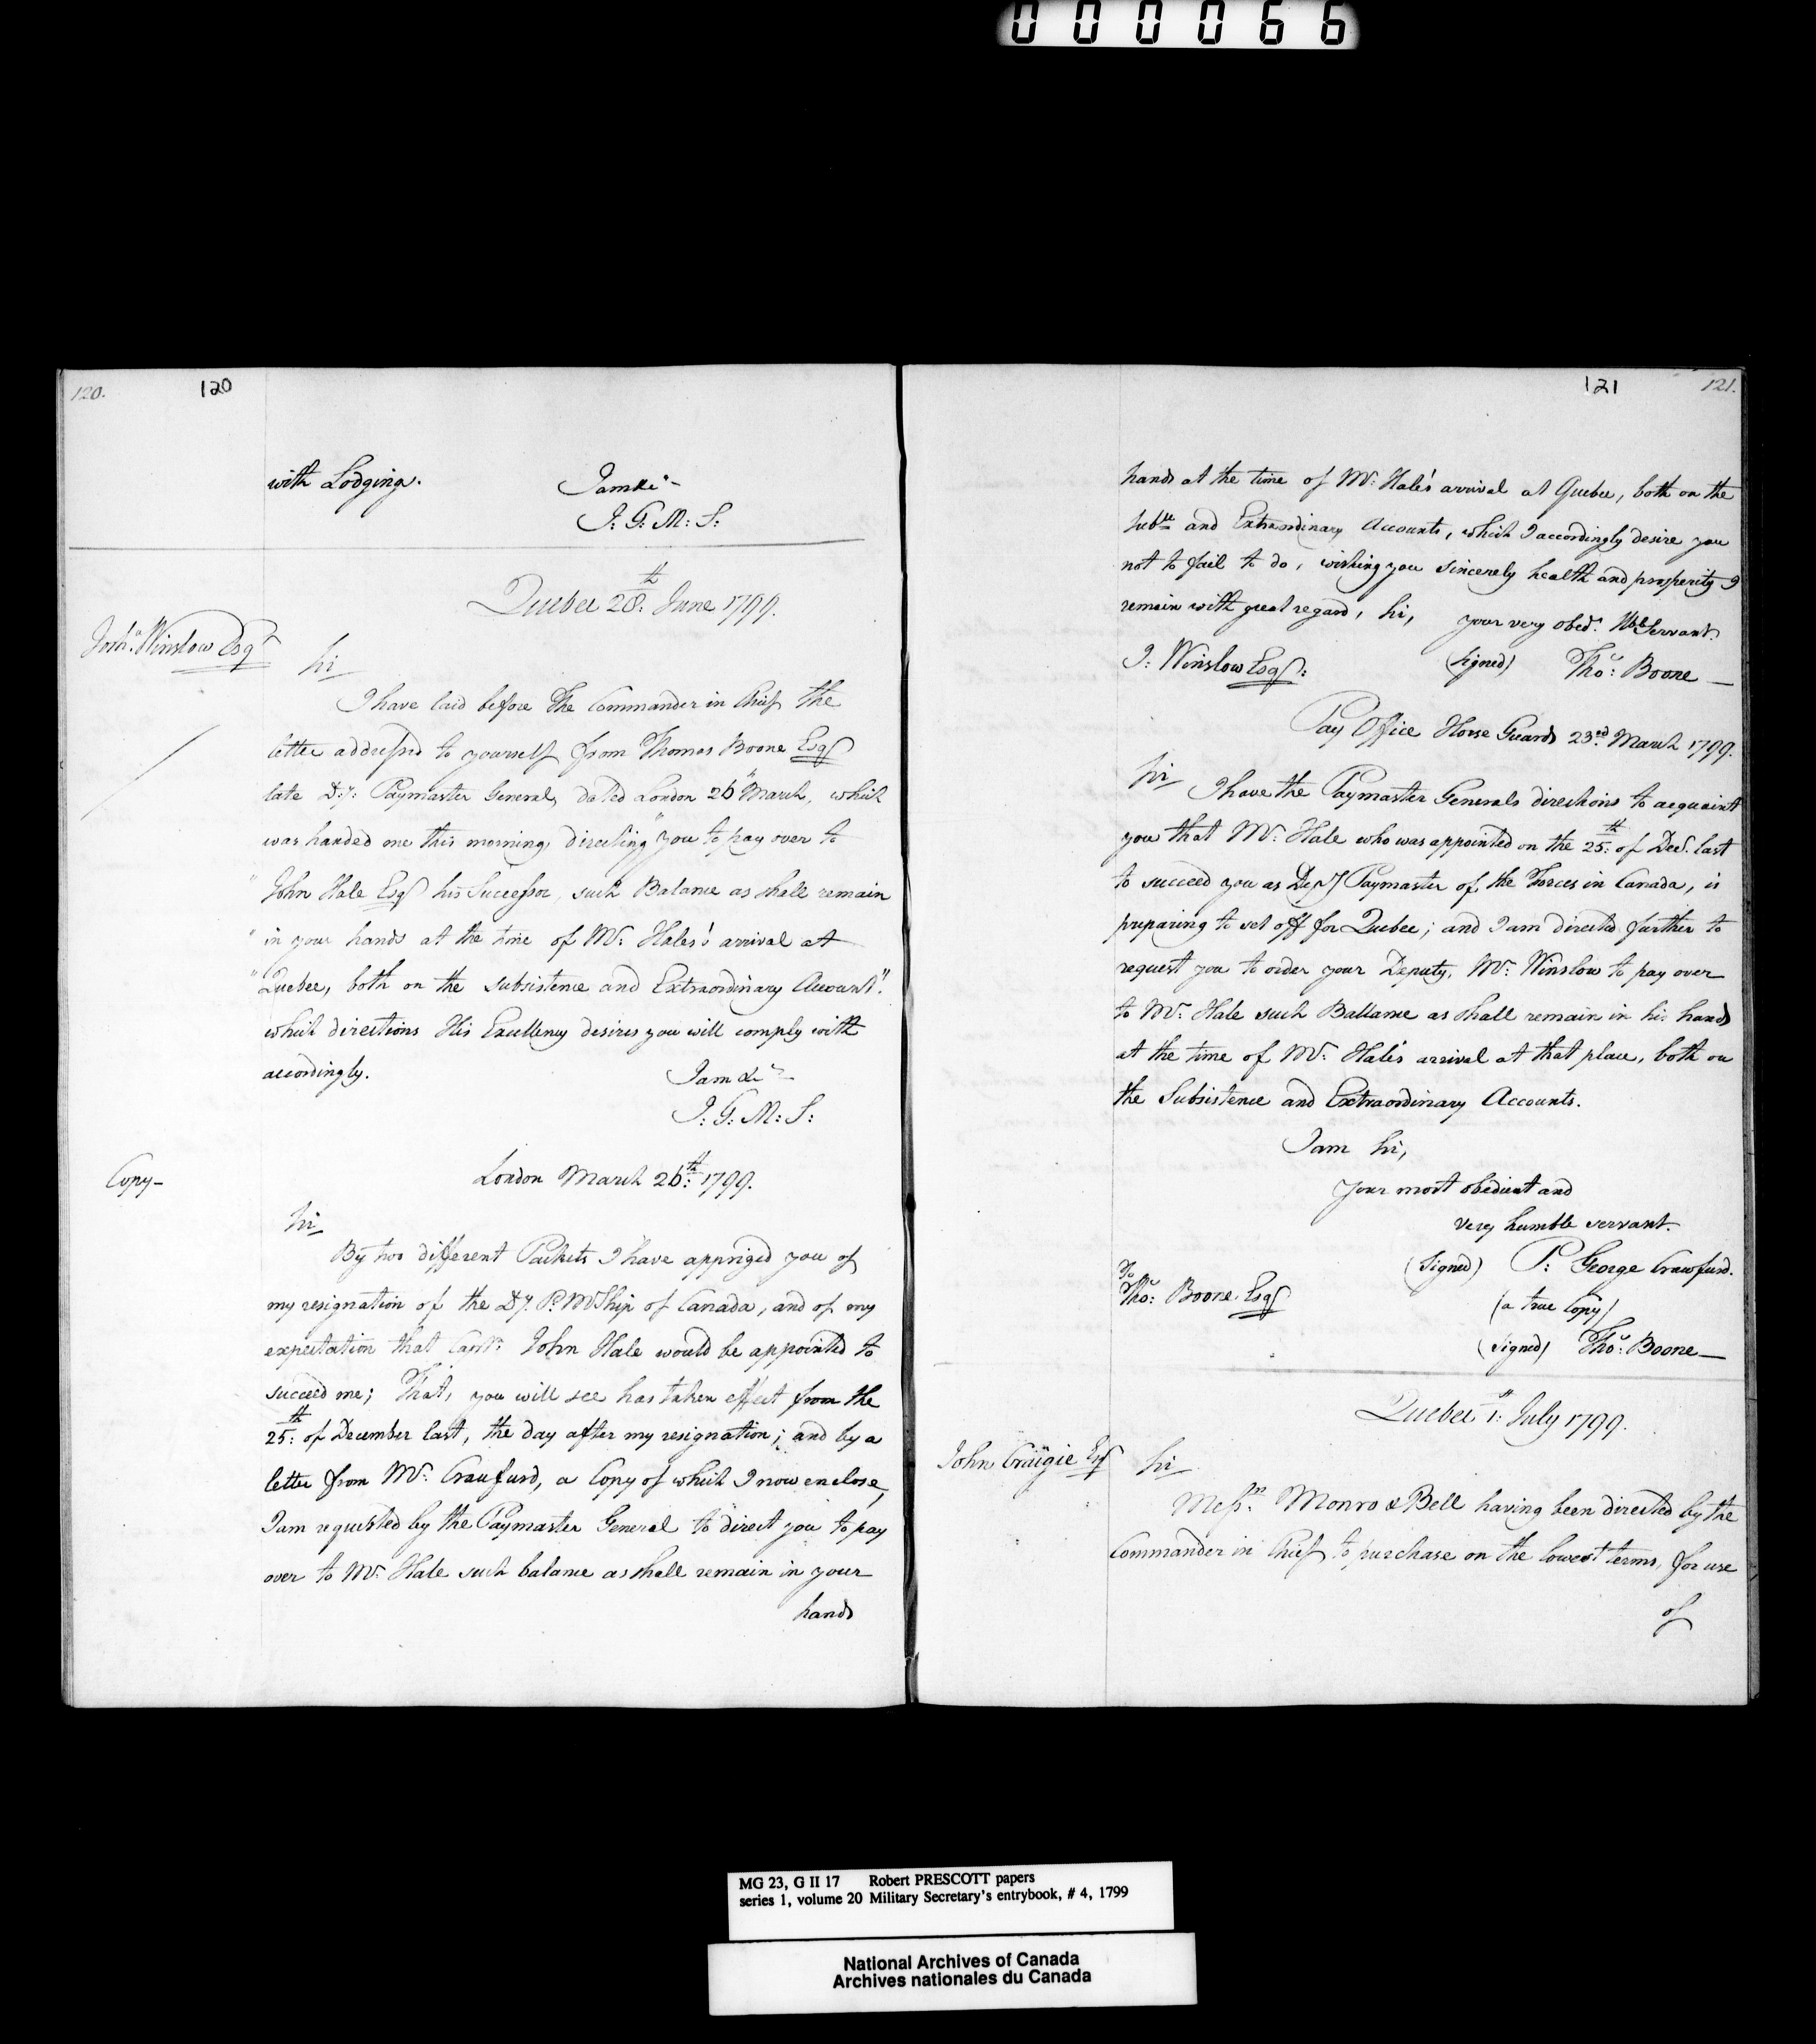 000066
120. 120
with Lodging. I am &c.-
J: G: M: S:
Quebec 28th: June 1799.
Josha. Winslow Esqr
Sir
I have laid before The Commander in Chief the
letter addressed to yourself from Thomas Boone Esqr
late D:y: Paymaster General, dated London 26th March, which
was handed me this morning, directing "you to pay over to
"John Hale Esqr his Successor, such Balance as shall remain
"in your hands at the time of Mr: Hales's arrival at
"Quebec, both on the subsistence and Extraordinary Account".
which directions His Excellency desires you will comply with
accordingly. I am &c.-
J: G: M: S:
Copy- London March 26th: 1799.
Sir
By two different Packets I have apprized you of
my resignation of the Dy. P. MShip of Canada, and of my
expectation that Capt: John Hale would be appointed to
succeed me; That, you will see has taken effect from the
25th: of December last, the day after my resignation; and by a
letter from Mr: Craufurd, a Copy of which I now enclose,
I am requested by the Paymaster General to direct you to pay
over to Mr. Hale such balance as shall remain in your
hands
121 121.
hands at the time of Mr: Hale's arrival at Quebec, both on the
Subce and Extraordinary Accounts, which I accordingly desire you
not to fail to do, wishing you sincerely health and prosperity I
remain with great regard, Sir, your very obedt. Hble Servant.
J: Winslow Esqr: (signed) Thos: Boone—
Pay Office Horse Guards 23rd: March 1799.
Sir I have the Paymaster Generals directions to acquaint
you that Mr: Hale who was appointed on the 25th: of Decr. last
to succeed you as Depy Paymaster of the Forces in Canada, is
preparing to set off for Quebec; and I am directed further to
request you to order your Deputy, Mr: Winslow to pay over
to Mr: Hale such Ballance as shall remain in his hands
at the time of Mr: Hale's arrival at that place, both on
the Subsistence and Extraordinary Accounts.
I am Sir,
Your most obedient and
very humble servant.
(Signed) P: George Crawfurd.
To
Thos: Boone Esqr
(a true Copy)
(signed) Thos: Boone—
Quebec 1st: July 1799.
John Craigie Esqr Sir
Messrs: Monro & Bell having been directed by the
Commander in Chief to purchase on the lowest terms, for use
of
MG 23, G II 17 Robert PRESCOTT papers
series 1, volume 20 Military Secretary's entrybook, # 4, 1799
National Archives of Canada
Archives nationales du Canada